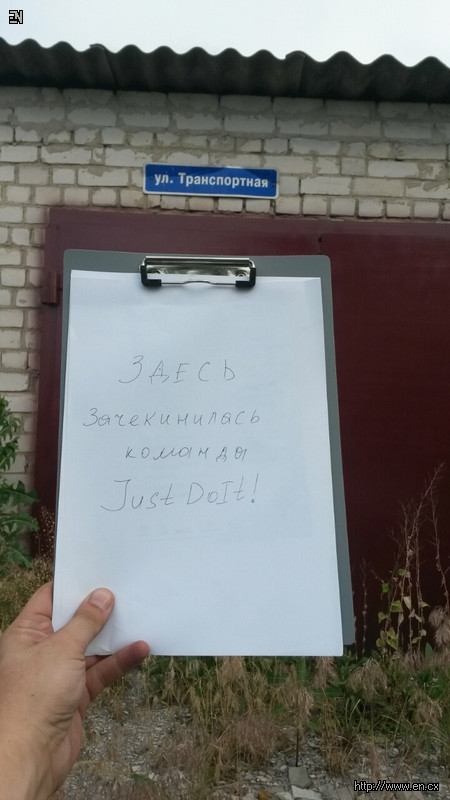 EN
ул. Транспортная
ЗДЕСЬ
Зачекинилась
команда
Just DoIt!
http://www.en.cx